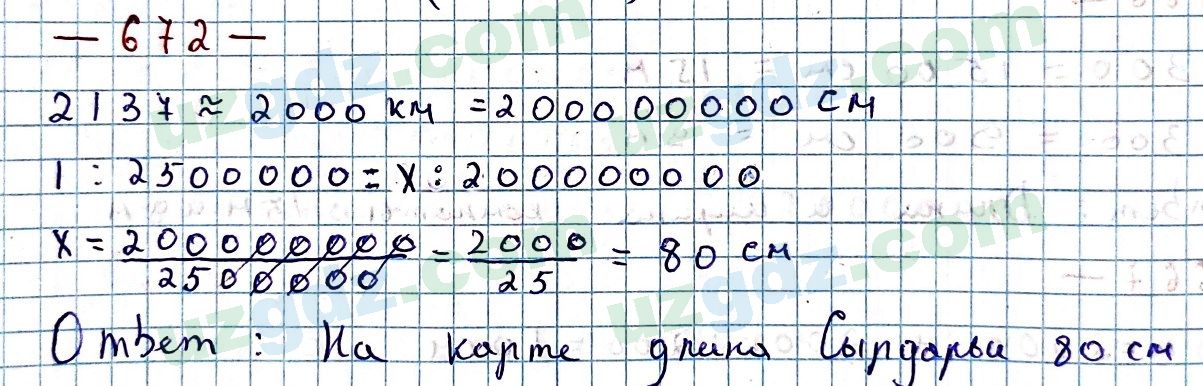 — 672 —
2137 ≈ 2000 км = 200000000 см
1 : 2500000 = х : 200000000
х = 200000000/2500000 = 2000/25 = 80 см
Ответ : На карте длина Сырдарьи 80 см
uzgdz.com
uzgdz.com
uzgdz.com
uzgdz.com